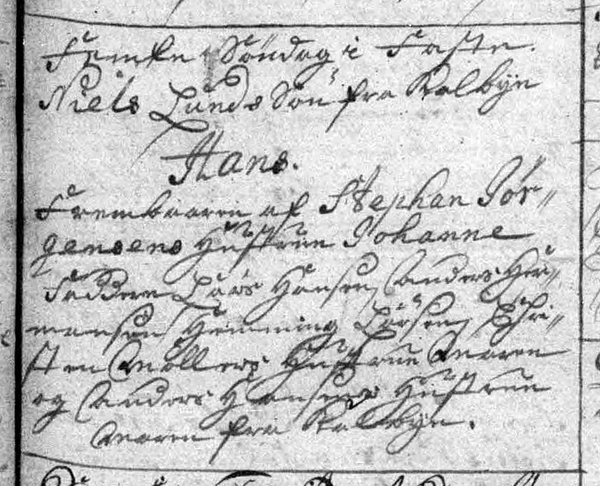 Femte Søndag i Faste.
Niels Lunds Søn fra Kalbye
Hans.
Frembaaren af Stephan Jör-
gensens Hustrue Johanne
Faddere Lars Hansen, Anders Her-
mansen, Hemming Larsen, Chri-
sten Møllers Hustrue Maren
og Anders Hansens Hustrue
Maren fra Kalbye.